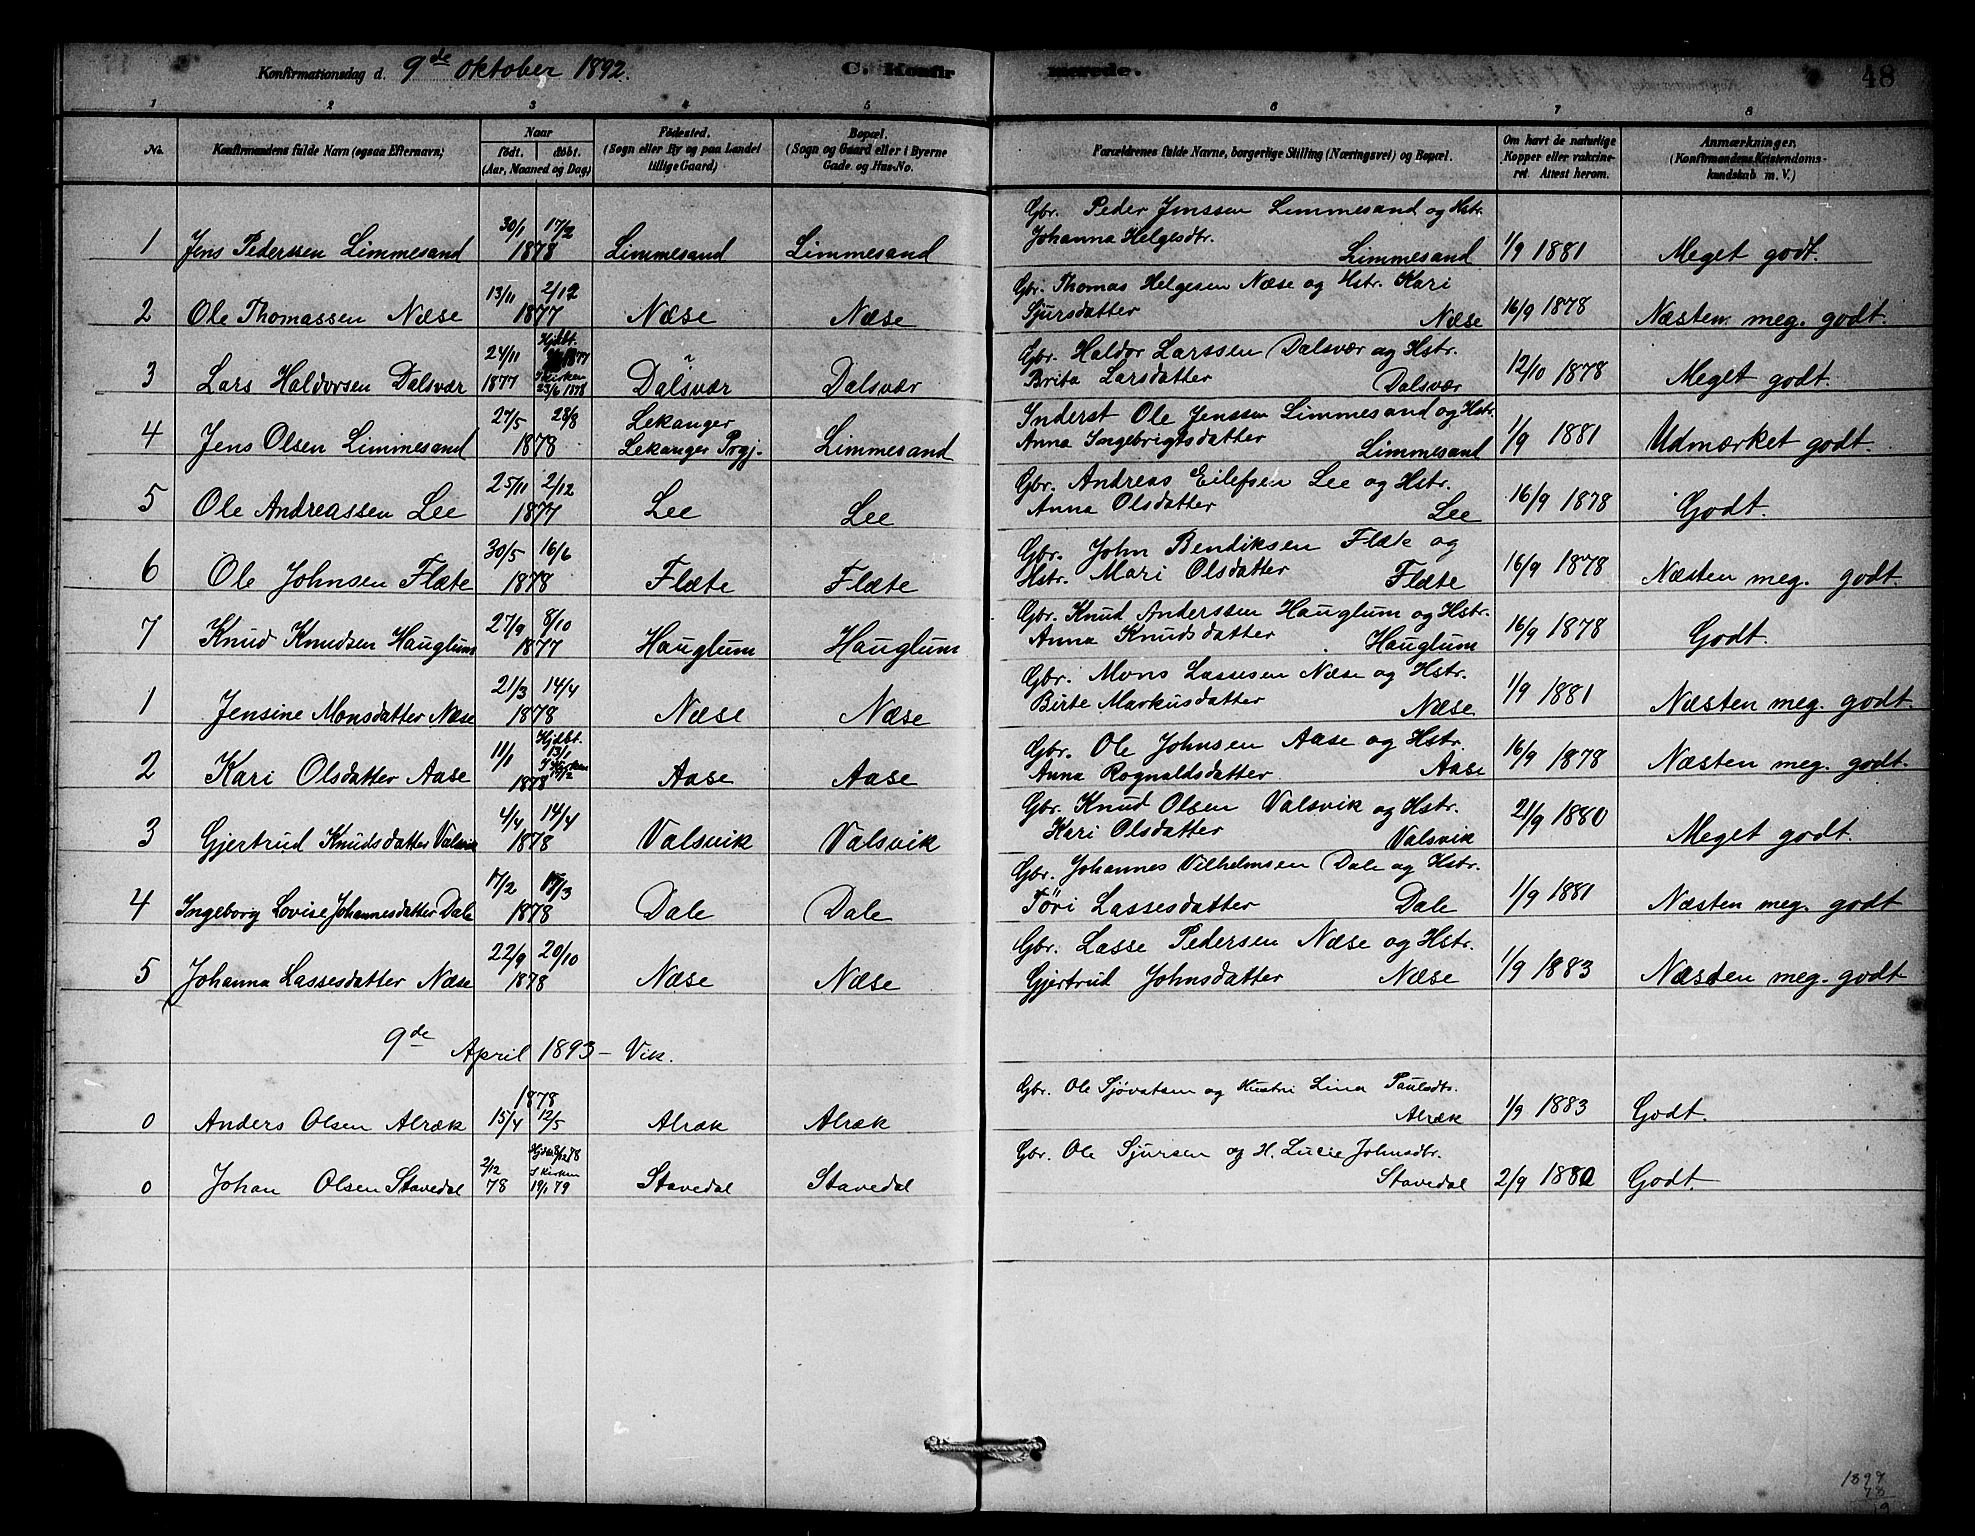 Konfirmationsdag d. 9de Oktober 1892. C. Konfirmerede. 48
1 2 3 4 5 6 7 8
No. Konfirmandens fulde Navn (ogsaa Efternavn) Naar født. døbt. (Aar, Maaned og Dag) Fødested. (Sogn eller By og paa Landet tillige Gaard) Bopæl. (Sogn og Gaard eller i Byerne Gade og Hus-No. Forældrenes fulde Navne, borgerlige Stilling (Næringsvei) og Bopæl. Om havt de naturlige Kopper eller vakcineret. Attest herom. Anmærkninger. (Konfirmandens Kristendomskundskab m. V.)
1 Jens Pederssen Limmesand 30/1 17/2 1878 Limmesand Limmesand Gbr. Peder Jenssen Limmesand og Hstr. Johanna Helgesdtr. Limmesand 1/9 1881 Meget godt.
2 Ole Thomassen Næse 13/11 2/12 1877 Næse Næse Gbr. Thomas Helgesen Næse og Hstr. Kari Sjursdatter Næse 16/9 1878 Næsten meg. godt.
3 Lars Haldorsen Dalsvær 24/11 1877 Hjdbt. 1877 I Kirken 23/6 1878 Dalsvær Dalsvær Gbr. Haldor Larssen Dalsvær og Hstr. Brita Larsdatter Dalsvær 12/10 1878 Meget godt.
4 Jens Olsen Limmesand 27/5 28/8 1878 Lekanger Lekanger Prgj. Limmesand Inderst Ole Jenssen Limmesand og Hstr. Anna Ingebrigtsdatter Limmesand 1/9 1881 Udmærket godt.
5 Ole Andreassen Lee 25/11 2/12 1877 Lee Lee Gbr. Andreas Eilefsen Lee og Hstr. Anna Olsdatter Lee 16/9 1878 Godt.
6 Ole Johnsen Flæte 30/5 16/6 1878 Flæte Flæte Gbr. John Bendiksen Flæte og Hstr. Mari Olsdatter Flæte 16/9 1878 Næsten meg. godt.
7 Knud Knudsen Hauglum 27/9 8/10 1877 Hauglum Hauglum Gbr. Knud Anderssen Hauglum og Hstr. Anna Knudsdatter Hauglum 16/9 1878 Godt.
1 Jensine Monsdatter Næse 21/3 14/4 1878 Næse Næse Gbr. Mons Lassesen Næse og Hstr. Birte Markusdatter Næse 1/9 1881 Næsten meg. godt.
2 Kari Olsdatter Aase 11/1 1878 Hjdbt. 13/1 I Kirken Aase Aase Gbr. Ole Johnsen Aase og Hstr. Anna Rognaldsdatter Aase 16/9 1878 Næsten meg. godt.
3 Gjertrud Knudsdatter Valsvik 4/4 14/4 1878 Valsvik Valsvik Gbr. Knud Olsen Valsvik og Hstr. Kari Olsdatter Valsvik 21/9 1880 Meget godt.
4 Ingeborg Lovise Johannesdatter Dale 17/2 17/3 1878 Dale Dale Gbr. Johannes Vilhelmsen Dale og Hstr. Töri Lassesdatter Dale 1/9 1881 Næsten meg. godt
5 Johanna Lassesdatter Næse 22/9 20/10 1878 Næse Næse Gbr. Lasse Pedersen Næse og Hstr. Gjertrud Johnsdatter Næse 1/9 1883 Næsten meg. godt
9de April 1893 – Vik.
0 Anders Olsen Alræk 1878 15/4 12/5 Alræk Alræk Gbr. Ole Sjøvatsen og Hustru Lina Paulsdtr. Alræk 1/9 1883 Godt.
0 Johan Olsen Stavedal 2/12 78 I Kirken 19/1 79 Stavedal Stavedal Gbr. Ole Sjursen og H. Lucie Johnsdtr. Stavedal 2/9 1880 Godt.
78
19